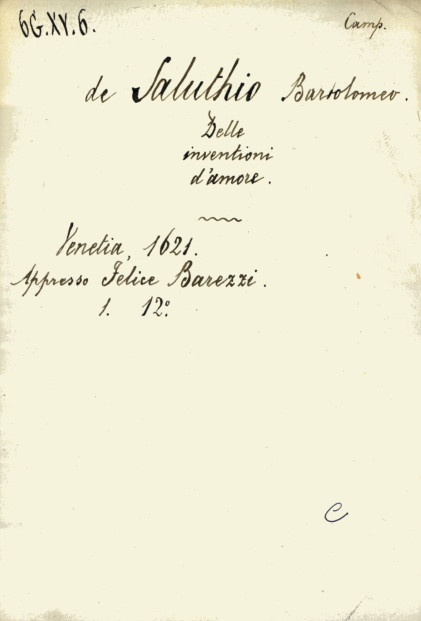 6G.XV.6.
Camp.
de Saluthio Bartolomeo.
Delle
inventioni
d'amore.
Venetia, 1621.
Appresso Felice Barezzi.
1. 12º.
C